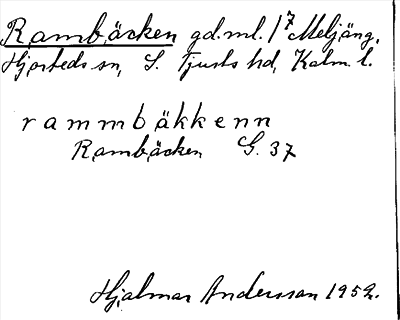 Rambäcken gd. ml. 1⁷ Meljäng.
Hjorteds sn, S. Tjusts hd, Kalm. l.
rammbäkkenn
Rambäcken G. 37
Hjalmar Andersson 1952.